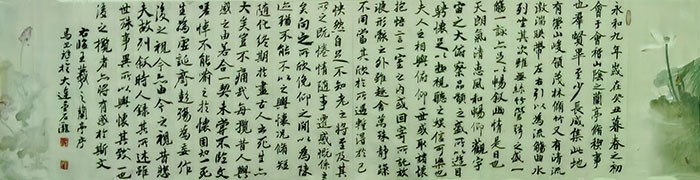 永和九年歲在癸丑暮春之初
會于會稽山陰之蘭亭脩禊事
也羣賢畢至少長咸集此地
有崇山峻領茂林脩竹又有清流
激湍暎帶左右引以為流觴曲水
列坐其次雖無絲竹管弦之盛一
觴一詠亦足以暢敘幽情是日也
天朗氣清惠風和暢仰觀宇
宙之大俯察品類之盛所以遊目
騁懷足以極視聽之娛信可樂也
夫人之相與俯仰一世或取諸懷
抱悟言一室之內或因寄所託放
浪形骸之外雖趣舍萬殊靜躁
不同當其欣於所遇暫得於己
快然自足不知老之將至及其
所之既倦情隨事遷感慨係之
矣向之所欣俛仰之間以為陳
迹猶不能不以之興懷況脩短
隨化終期於盡古人云死生亦
大矣豈不痛哉每攬昔人興
感之由若合一契未嘗不臨文
嗟悼不能喻之於懷固知一死
生為虛誕齊彭殤為妄作
後之視今亦由今之視昔悲
夫故列敘時人錄其所述雖
世殊事異所以興懷其致一也
後之攬者亦將有感於斯文
右臨王羲之蘭亭序
於大連